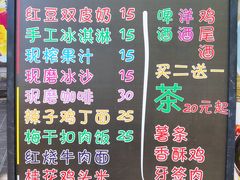 红豆双皮奶 15
手工冰淇淋 15
现榨果汁 15
现磨冰沙 15
现磨咖啡 30
辣子鸡丁面 25
梅干扣肉饭 25
红烧牛肉面
桂花鸡头米
啤酒 洋酒 鸡尾酒
买二送一
茶 20元起
薯条
香酥鸡
牙签肉